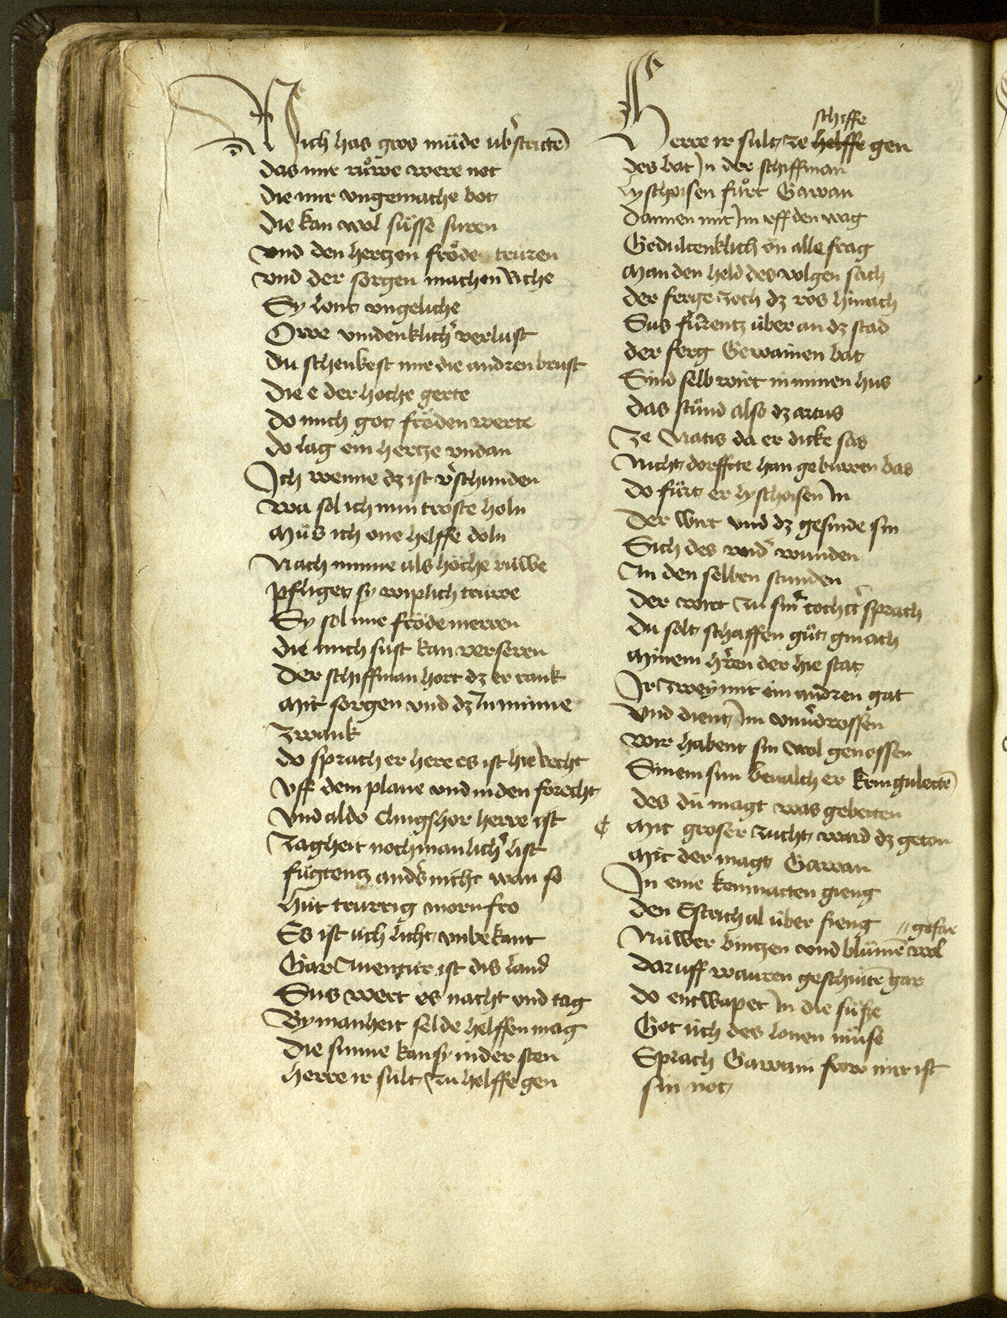 Mich has gros müde úbstricte
das mir růwe were not
die mir vngemache bot
die kan wol süsse suren
vnd den hertzen fröde turen
vnd der sorgen machen riche
Sy lont vngeliche
Owe vindenklich verlust
Du schenkest mir die andren brust
Die e der hoche gerte
do mich got fröden werte
do lag ein hertze vndan
Ich wenne dz ist vschunden
wa sol ich nun troste holn
Müs ich one helffe doln
Nach minne als hoche rüwe
pfliget sy wiplich truwe
Sy sol mir fröde merren
die mich sust kan verseren
Der schiffman hort dz er rank
Mit sorgen vnd dz In minne
zwank
do sprach er here es ist hie recht
Vff dem plane vnd in den forecht
Vnd aldo Clingshor herre ist
Zagheit noch manlich list
fügtentz anders nicht wan so
Hüt trurrig morn fro
Es ist üch licht vnbekant
Gar Auentür ist dis land
Sus wert es nacht vnd tag
By manheit selde helffen mag
Die sunne kan so nider sten
Herre ir sült zu helffe gen
Herre ir sült ze helffe schiffe gen
des bat In der schiffman
lyschoisen fürt Gawan
Dannen mit Im vff den wag
Gedultenklich on alle frag
Man den held des volgen sach
der ferge zoch dz ros hinach
Sus fürentz über an dz stad
der ferg Gewainen bat
Sind selb wirt in minen hus
das stünd also dz artus
Ze Natis da er dicke sas
Nicht dorffte han geburren bas
do fürt er lyschoisen In
Der wirt vnd dz gesinde sin
Sich des vnd wunden
An den selben stunden
Der wirt zu sinr tochter sprach
du solt schaffen güt gmach
Minem hren der hie stat
Ir zwey mit ein andren gat
Vnd dient Im vnudrossen
wir habent sin wol genossen
Sinem sun beualch er kringulecte
des dü magt was gebetten
Mit groser zucht ward dz getan
Mit der magt Gawan
In eine kemnatten gieng
den Estrich al über fieng
Nüwer bintzen vnd blümē wol gefar
Daruff wauren geschnitē gar
do entwapet In die süsse
Got üch des lonen müse
Sprach Gawain frow mir ist
sin not